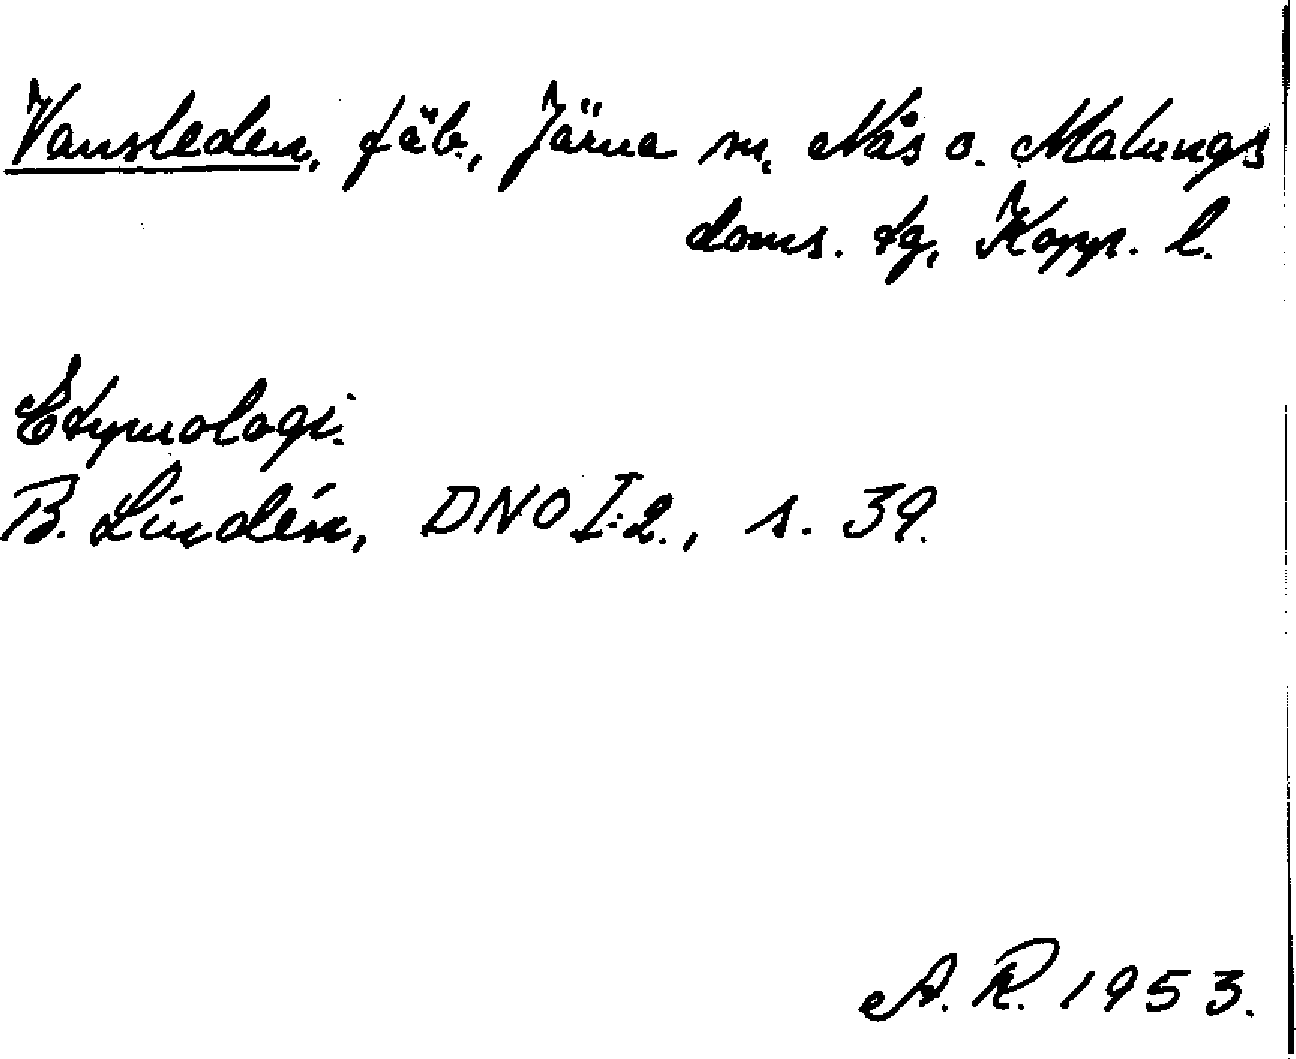 Vansleden, fäb., Järna sn, Nås o. Malungs
doms. tg, Kopp. l.
Etymologi.
B. Lindén, DNO I:2., s. 39.
A. R. 1953.